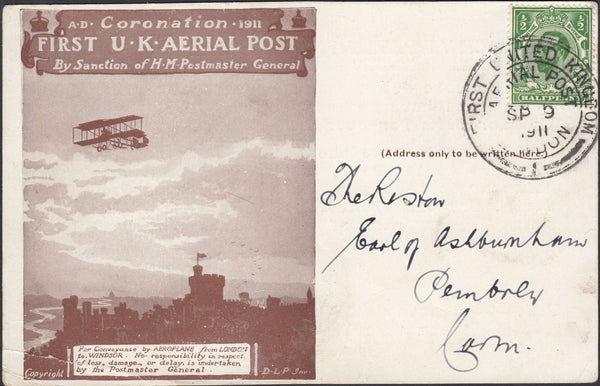 A·D· Coronation ·1911
FIRST U·K·AERIAL POST
By Sanction of H·M·Postmaster General
For Conveyance by AEROPLANE from LONDON
to WINDSOR. No responsibility in respect
of loss, damage, or delay, is undertaken
by the Postmaster General.
Copyright
D·L·P Inv.
½
½
HALFPENNY
FIRST UNITED KINGDOM
AERIAL POST
SP 9
1911
LONDON
1
(Address only to be written here)
Earl of Ashburnham
Pembrey
Carm.